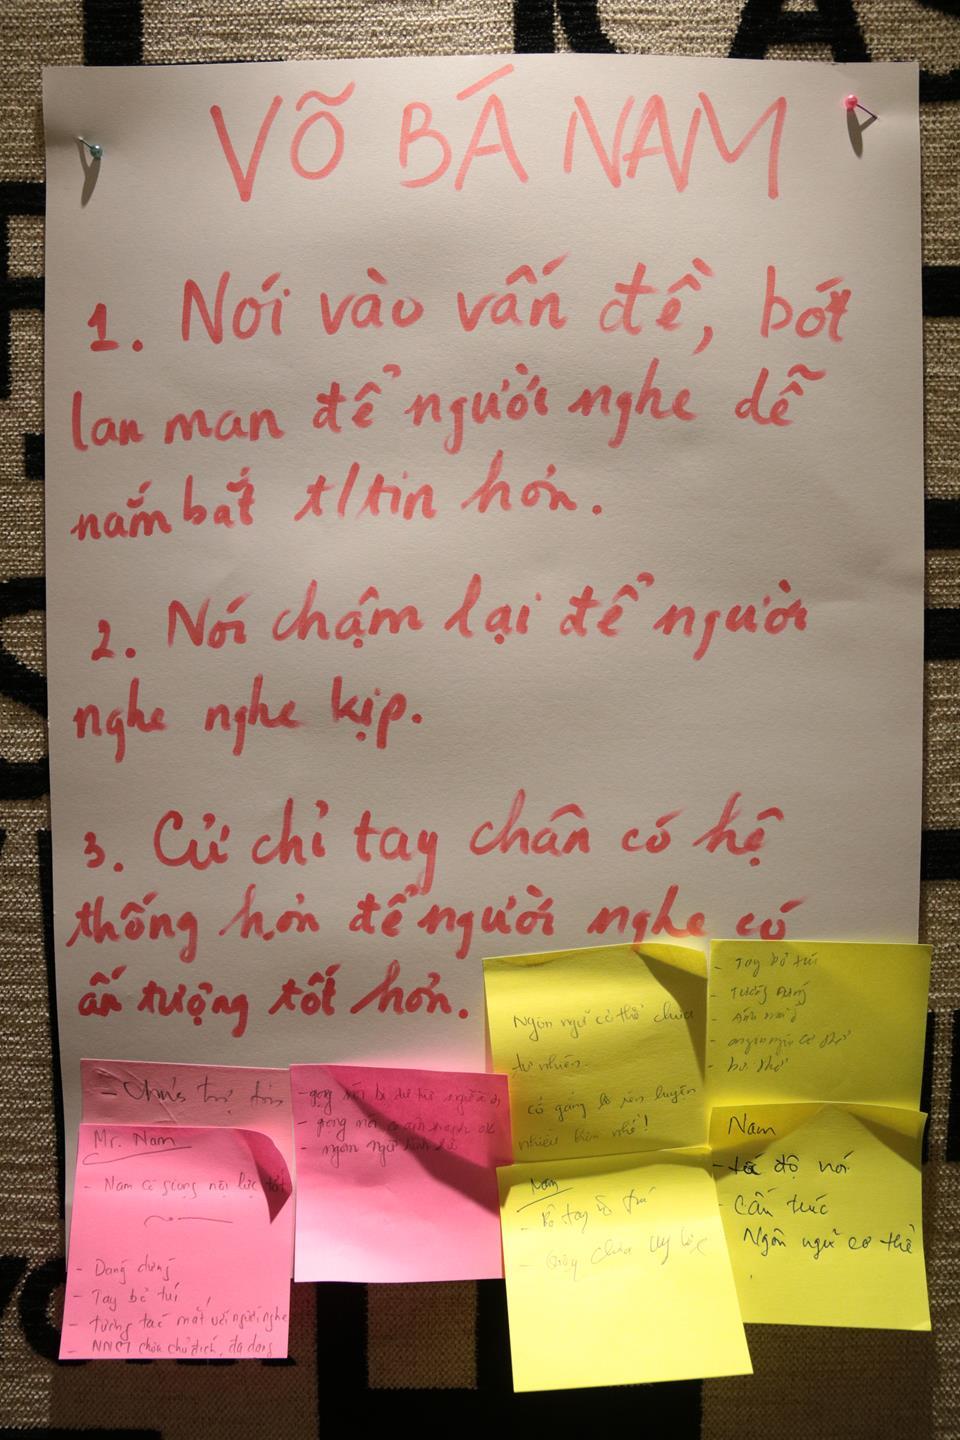 VÕ BÁ NAM
1. Nói vào vấn đề, bớt
lan man để người nghe dễ
nắm bắt t/tin hơn.
2. Nói chậm lại để người
nghe nghe kịp.
3. Cử chỉ tay chân có hệ
thống hơn để người nghe có
ấn tượng tốt hơn.
Mr. Nam
- Nam có giọng nội lực tốt
- Dáng đứng
- Tay bỏ túi
- tương tác mắt với người nghe
- NNCT chưa chủ đích, đa dạng
- giọng nói
- giọng nói
- ngôn ngữ hình thể
Ngôn ngữ cơ thể chưa
tự nhiên.
cố gắng rèn luyện
nhiều hơn nhé!
- Tay bỏ túi
- Tướng đứng
- Ánh mắt
- ngôn ngữ cơ thể
Nam
- Bỏ tay
- Giọng chưa
Nam
- tốc độ nói
- Cấu trúc
Ngôn ngữ cơ thể